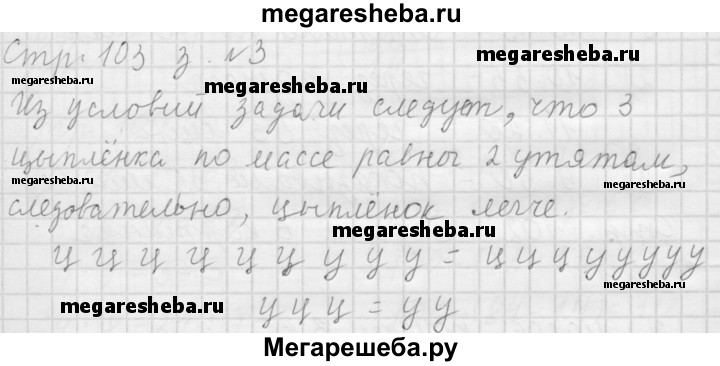 megaresheba.ru
Стр. 103 з. №3
megaresheba.ru
megaresheba.ru
megaresheba.ru
Из условий задачи следует, что 3
цыплёнка по массе равны 2 утятам,
megaresheba.ru
megaresheba.ru
следовательно, цыплёнок легче.
megaresheba.ru
ц ц ц ц ц ц у у у = ц ц ц у у у у у
megaresheba.ru
megaresheba.ru
ц ц ц = у у
Мегарешеба.ру